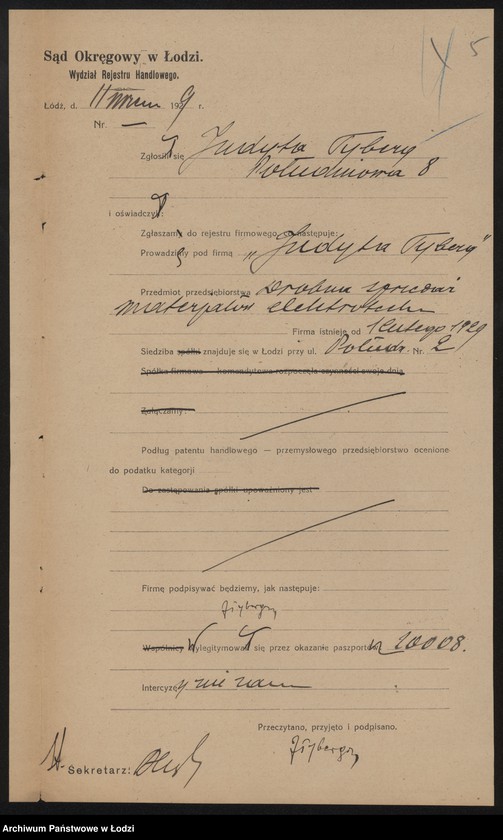 5
Sąd Okręgowy w Łodzi.
Wydział Rejestru Handlowego.
Łódź, d. 11 1929 r.
Nr. —
Zgłosił się Judyta Tyberg
Południowa 8
i oświadczył:
Zgłaszam do rejestru firmowego, co następuje:
Prowadzimy pod firmą „Judyta Tyberg”
Przedmiot przedsiębiorstwa Drobna sprzedaż
materjałów elektrotechn
Firma istnieje od 1 lutego 1929
Siedziba spółki znajduje się w Łodzi przy ul. Połudn. Nr. 2
Spółka firmowo — komandytowa rozpoczęła czynności swoje dnia
Załączamy:
Podług patentu handlowego — przemysłowego przedsiębiorstwo ocenione
do podatku kategorji
Do zastępowania spółki upoważniony jest
Firmę podpisywać będziemy, jak następuje:
JTyberg
Wspólnicy wylegitymował się przez okazanie paszportów 20008.
Intercyzy nie zaw
Przeczytano, przyjęto i podpisano.
JTyberg
Sekretarz:
Archiwum Państwowe w Łodzi